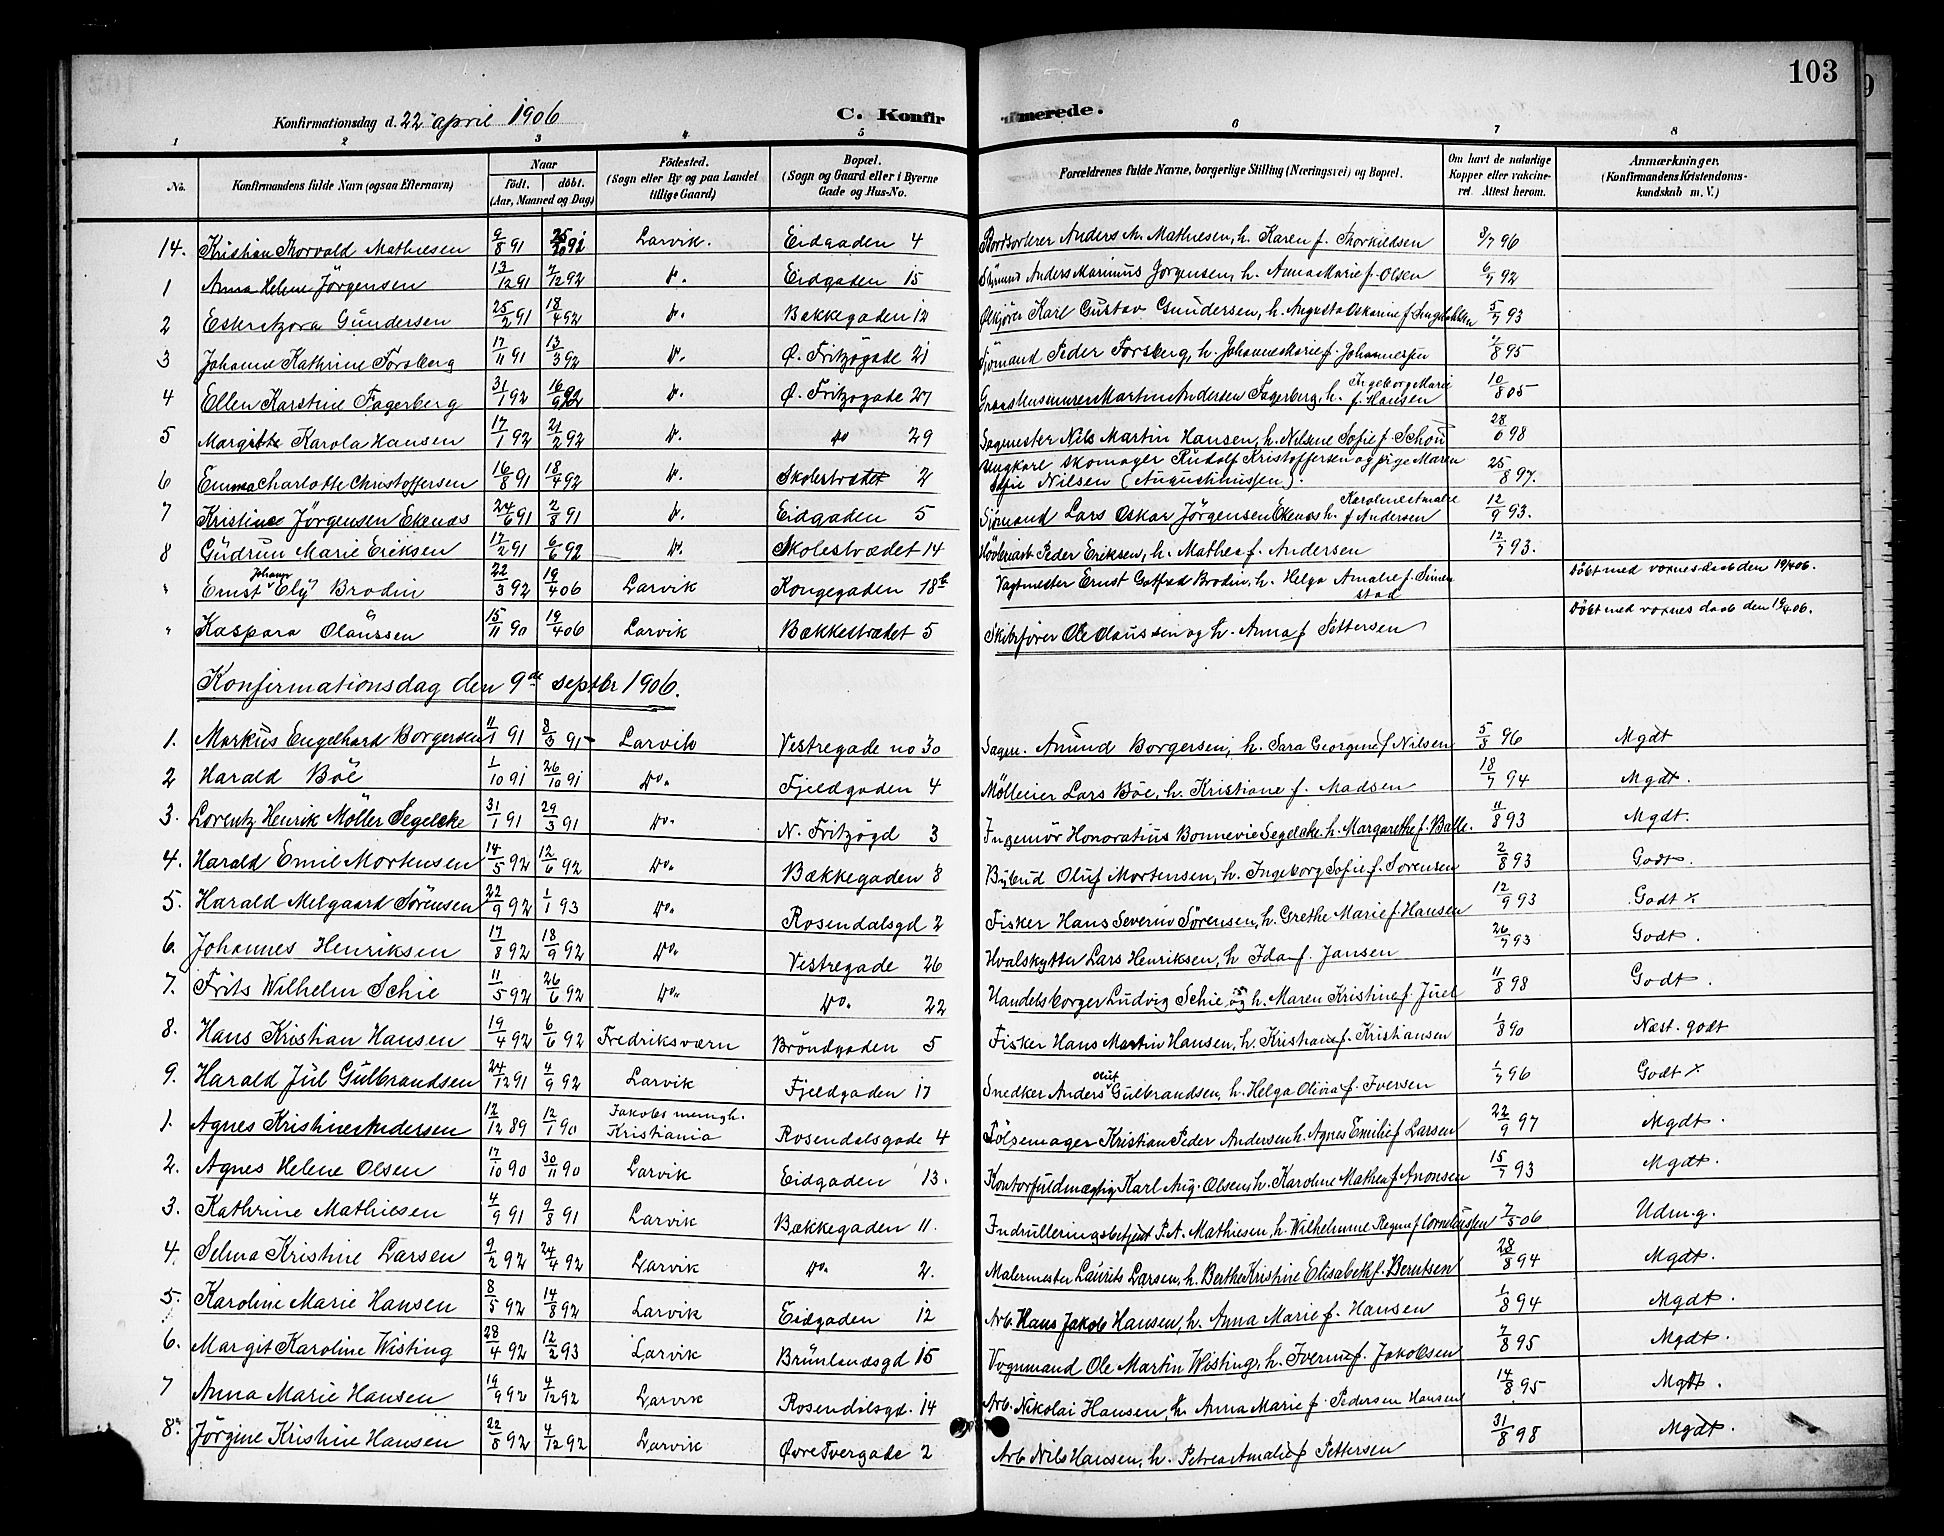 103
Konfirmationsdag d. 22 april 1906 C. Konfirmerede.
1 2 3 4 5 6 7 8
No. Konfirmandens fulde Navn (ogsaa Efternavn) Naar födt. döbt. (Aar, Maaned og Dag) Födested. (Sogn eller By og paa Landet tillige Gaard) Bopæl. (Sogn og Gaard eller i Byerne Gade og Hus-No. Forældrenes fulde Navne, borgerlige Stilling (Næringsvei) og Bopæl. Om havt de naturlige Kopper eller vakcineret. Attest herom. Anmærkninger. (Konfirmandens Kristendomskundskab m. V.)
14. Kristian Thorvald Mathiesen 9/8 91 25/10 92 Larvik. Eidgaden 4 Bordsorterer Anders M. Mathiesen, h. Karen f. Thorkildsen 3/7 96
1 Anna Helene Jörgensen 13/12 91 7/12 92 do. Eidgaden 15 Anders Marinius Jorgensen, h. Anna Marie f. Olsen 6/7 92
2 Gundersen 25/2 91 18/4 92 do. Bekkegaden 12 Karl Gustav Gundersen, h. Augusta Oskarine f. 5/7 93
3 Johanne Kathrine Forsberg 17/11 91 13/3 92 do. Ø. Fritzögade 21 Sjömand Peder Forsberg, h. Johanne Marie f. Johannessen 7/8 95
4 Ellen Karstine Fagerberg 31/1 92 16/9 92 do. Ø. Fritzogade 27 Martin Andersen Fagerberg, h. Ingeborg Marie f. Hansen 10/8 05
5 Margitte Karola Hansen 17/1 92 21/2 92 do. do 29 Sagmester Nils Martin Hansen, h. Nilsine Sofie f. Schou 28/6 98
6 Emma Charlotte Christoffersen 16/8 91 18/4 92 do. Skolestrædet 2 Ungkarl skomager Rudolf Kristoffersen og pige Maren Sofie Nilsen (Augustinussen). 25/8 97.
7 Kristine Jörgensen Ekenæs 24/6 91 2/8 91 do. Eidgaden 5 Sjömand Lars Oskar Jörgensen Ekenæs h. Karoline Amalie f Andersen 12/9 93.
8 Gudrun Marie Eriksen 17/2 91 6/6 92 do. Skolestrædet 14 Peder Eriksen, h. Mathea f. Andersen 12/7 93.
" Ernst Johann Ely Brodin 22/3 92 19/4 06 Larvik Kongegaden 18b Vagtmester Ernst Gotfred Brodin, h. Helga Amalie f. Simenstad Döbt med voxnes daab den 19/4 06.
" Kaspara Olaussen 15/11 90 19/4 06 Larvik Bækkestrædet 5 Skibsfører Ole Olaussen og h. Anna f Pettersen Döbt med voxnes daab den 19/4 06.
Konfirmationsdag den 9de septbr 1906.
1. Markus Engelhard Borgersen 11/1 91 8/3 91 Larvik Vestregade no 30 Sagm. Amund Borgersen, h. Sara Georgine f Nilsen 5/8 96 Mgdt
2 Harald Böe 1/10 91 26/10 91 Do. Fjeldgaden 4 Mölleeier Lars Böe, h. Kristiane f. Madsen 18/7 94 Mgdt.
3. Lorentz Henrik Möller Segelcke 31/1 91 29/3 91 Do. N. Fritzögd 3 Ingeniör Honoratius Bonnevie Segelcke h. Margarethe f. Balle. 11/8 93 Mgdt.
4. Harald Emil Mortensen 14/5 92 12/6 92 Do. Bækkegaden 8 Bybud Oluf Mortensen, h. Ingeborg Sofie f. Sorensen 2/8 93 Godt.
5. Harald Melgaard Sörensen 22/9 92 1/1 93 Do. Rosendalsgd 2 Fisker Hans Severin Sörensen, h. Grethe Marie f. Hansen 12/9 93 Godt x
6. Johannes Henriksen 17/8 92 18/9 92 Do. Vestregade 26 Hvalskytter Lars Henriksen, h Ida f. Jansen 26/7 93 Godt.
7. Frits Wilhelm Schie 11/5 92 26/6 92 Do. Do. 22 Handelsborger Ludvig Schie og h. Maren Kristine f. Juel 11/8 98 Godt.
8. Hans Kristian Hansen 19/4 92 6/6 92 Fredriksværn Bröndgaden 5 Fisker Hans Martin Hansen, h. Kristiane f. Kristiansen 1/8 90 Næst. godt
9. Harald Jul Gulbrandsen 24/12 91 4/9 92 Larvik Fjeldgaden 17 Snedker Anders Oluf Gulbrandsen, h. Helga Olivia f. Iversen 1/7 96 Godt x
1. Agnes Kristine Andersen 12/12 89 12/1 90 Jakobs menigh. Kristiania Rosendalsgade 4 Pölsemager Kristian Peder Andersen h. Agnes Emilie f Larsen 22/9 97 Mgdt.
2. Agnes Helene Olsen 17/10 90 30/11 90 Larvik Eidgaden 13. Kontorfuldmægtig Karl Aug. Olsen, h. Karoline Mathea f Anonsen 15/7 93 Mgdt.
3. Kathrine Mathiesen 4/9 91 9/8 91 Larvik Bækkegaden 11. Indrulleringsbetjent P. A. Mathiesen, h. Wilhelmine Regine f Corneliussen 7/5 06 Udm.g.
4. Selma Kristine Larsen 9/2 92 24/4 92 Larvik Do. 2. Malermester Laurits Larsen, h. Berthe Kristine Elisabeth f. Berntsen 28/8 94 Mgdt.
5. Karoline Marie Hansen 8/5 92 14/8 92 Larvik Eidgaden 12 Arb. Hans Jakob Hansen, h. Anna Marie f. Hansen 1/8 94 Mgdt.
6. Margit Karoline Wisting 28/4 92 12/2 93 Larvik Brunlanæsgd 15 Vognmand Ole Martin Wisting, h. Iverine f. Jakobsen 7/8 95 Mgdt.
7 Anna Marie Hansen 19/9 92 4/12 92 Larvik Rosendalsgd. 14 Arb. Nikolai Hansen, h. Anna Marie f. Pedersen Hansen 14/8 95 Mgdt.
8. Jörgine Kristine Hansen 22/8 92 4/12 92 Larvik Øvre Tvergade 2 Arb Nils Hansen, h. Petrea Amalie f Pettersen 31/8 98 Mgdt.